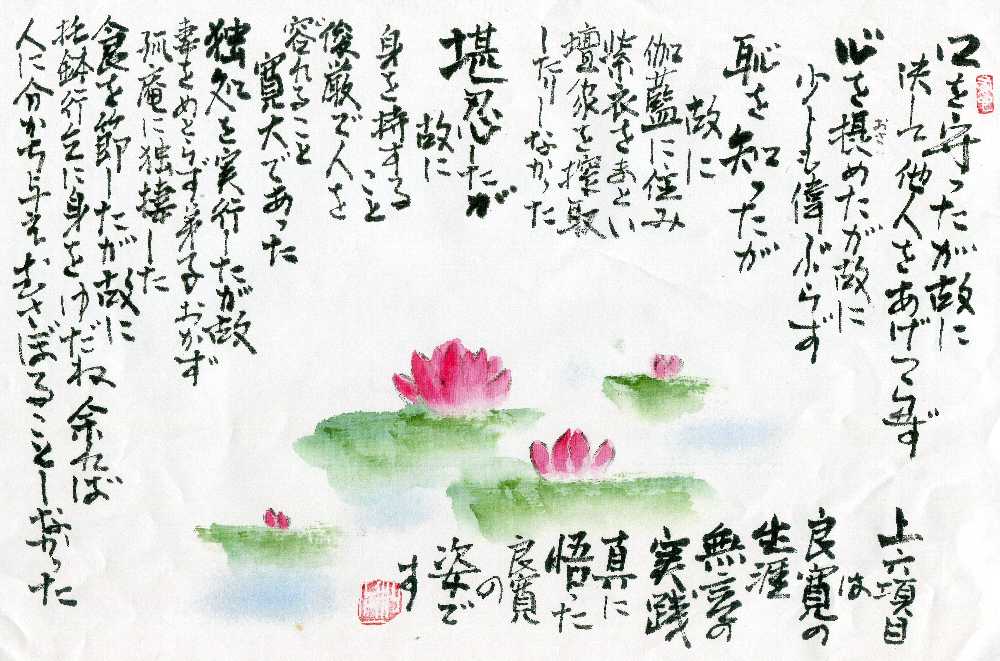 口を守ったが故に
決して他人をあげつらはず
心を摂めたが故に
おさ
少しも偉ぶらず
恥を知ったが
故に
伽藍に住み
紫衣をまとい
壇家を搾取
したりしなかった
堪忍したが
故に
身を持すること
俊厳で人を
容れること
寛大であった
独処を実行したが故
妻をめとらず弟子おかず
孤庵に独棲した
食を節したが故に
托鉢行乞に身をゆだね 余れば
人に分かち与えむさぼることしなかった
上六項目
は
良寛の
生涯
無言の
実践
真に
悟った
良寛
の
姿で
す